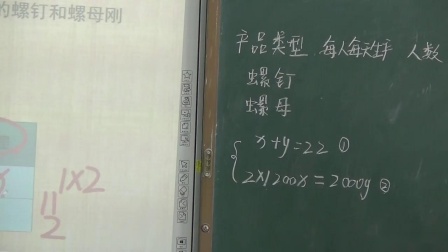 的螺钉和螺母刚
1×2
11
2
产品类型 每人每天生产 人数
螺钉
螺母
x+y=22 ①
2×1200x=2000y ②